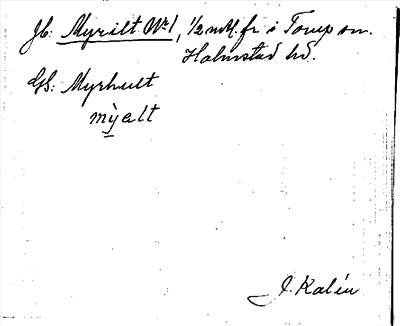 Jb: Myrilt Nr 1, 1/2 mtl. fr i Torup sn.
Halmstad hd.
GS: Myrhult
mỳalt
J. Kalén